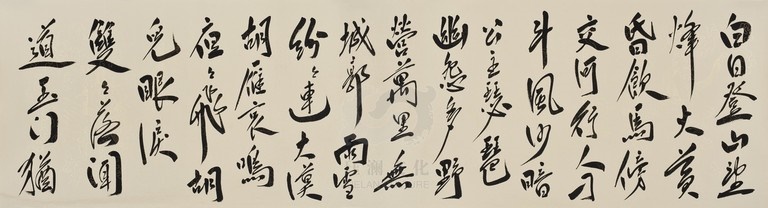 白日登山望
烽火黃
昏飲馬傍
交河行人刁
斗風沙暗
公主琵琶
幽怨多野
營萬里無
城郭雨雪
紛々連大漠
胡雁哀鳴
夜々飛胡
兒眼淚
雙々落聞
道玉門猶